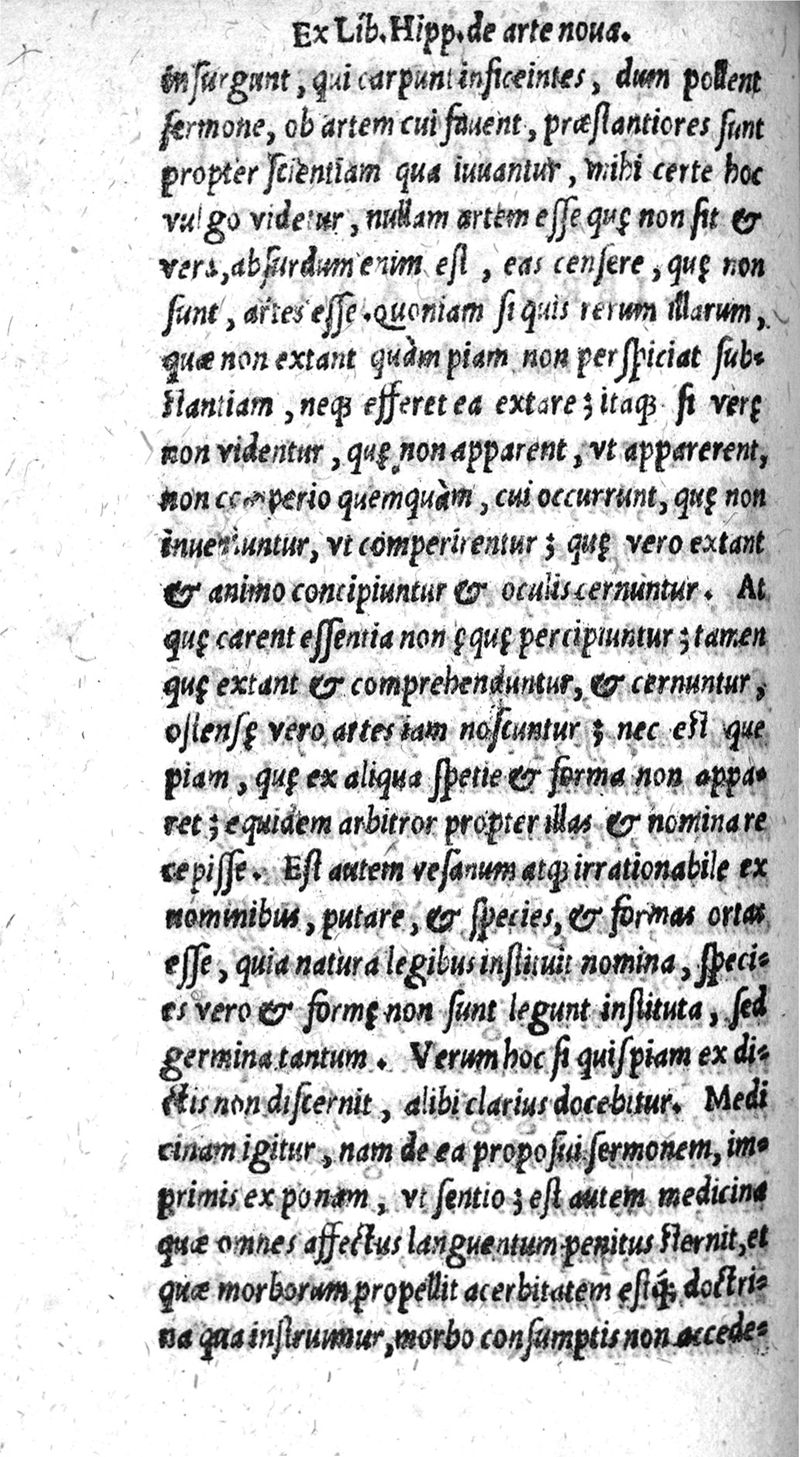 Ex Lib. Hipp. de arte noua.
inſurgunt, qui carpunt inſiceintes, dum pollent
ſermone, ob artem cui fauent, præſtantiores ſunt
propter ſcientiam qua iuuantur, mihi certe hoc
vulgo videtur, nullam artem eſſe quę non ſit &
vera, abſurdum enim eſt, eas cenſere, quę non
ſunt, artes eſſe. Quoniam ſi quis rerum illarum,
quæ non extant quàm piam non perſpiciat ſub-
ſtantiam, neq; efferet ea extare; itaq; ſi verę
non videntur, quę non apparent, vt apparerent,
non comperio quemquàm, cui occurrunt, quę non
inueniuntur, vt comperirentur; quę vero extant
& animo concipiuntur & oculis cernuntur. At
quę carent eſſentia non ęquę percipiuntur; tamen
quę extant & comprehenduntur, & cernuntur,
oſtenſę vero artes iam noſcuntur; nec eſt que
piam, quę ex aliqua ſpetie & forma non appa-
ret; equidem arbitror propter illas & nominare
cepiſſe. Eſt autem veſanum atq; irrationabile ex
nominibus, putare, & ſpecies, & formas ortas
eſſe, quia natura legibus inſtituit nomina, ſpeci-
es vero & formę non ſunt legunt inſtituta, ſed
germina tantum. Verum hoc ſi quiſpiam ex di-
ctis non diſcernit, alibi clarius docebitur. Medi
cinam igitur, nam de ea propoſui ſermonem, im-
primis exponam, vt ſentio; eſt autem medicina
quæ omnes affectus languentum penitus ſternit, et
quæ morborum propellit acerbitatem eſtq́; doctri-
na qua inſtruimur, morbo conſumptis non accede-